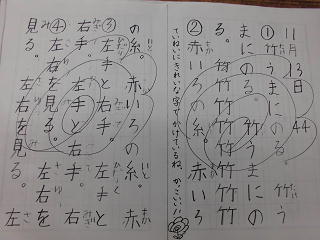 11月13日 44
①竹うまにのる。竹う
まにのる。竹うまにの
る。竹竹竹竹竹
②赤いろの糸。赤いろ
ていねいにきれいな字でかけているね。かっこいい!!
の糸。赤いろの糸。赤
③左手と右手。左手と
右手。左手と右
④左右を見る。左右を
見る。左右を見る。左